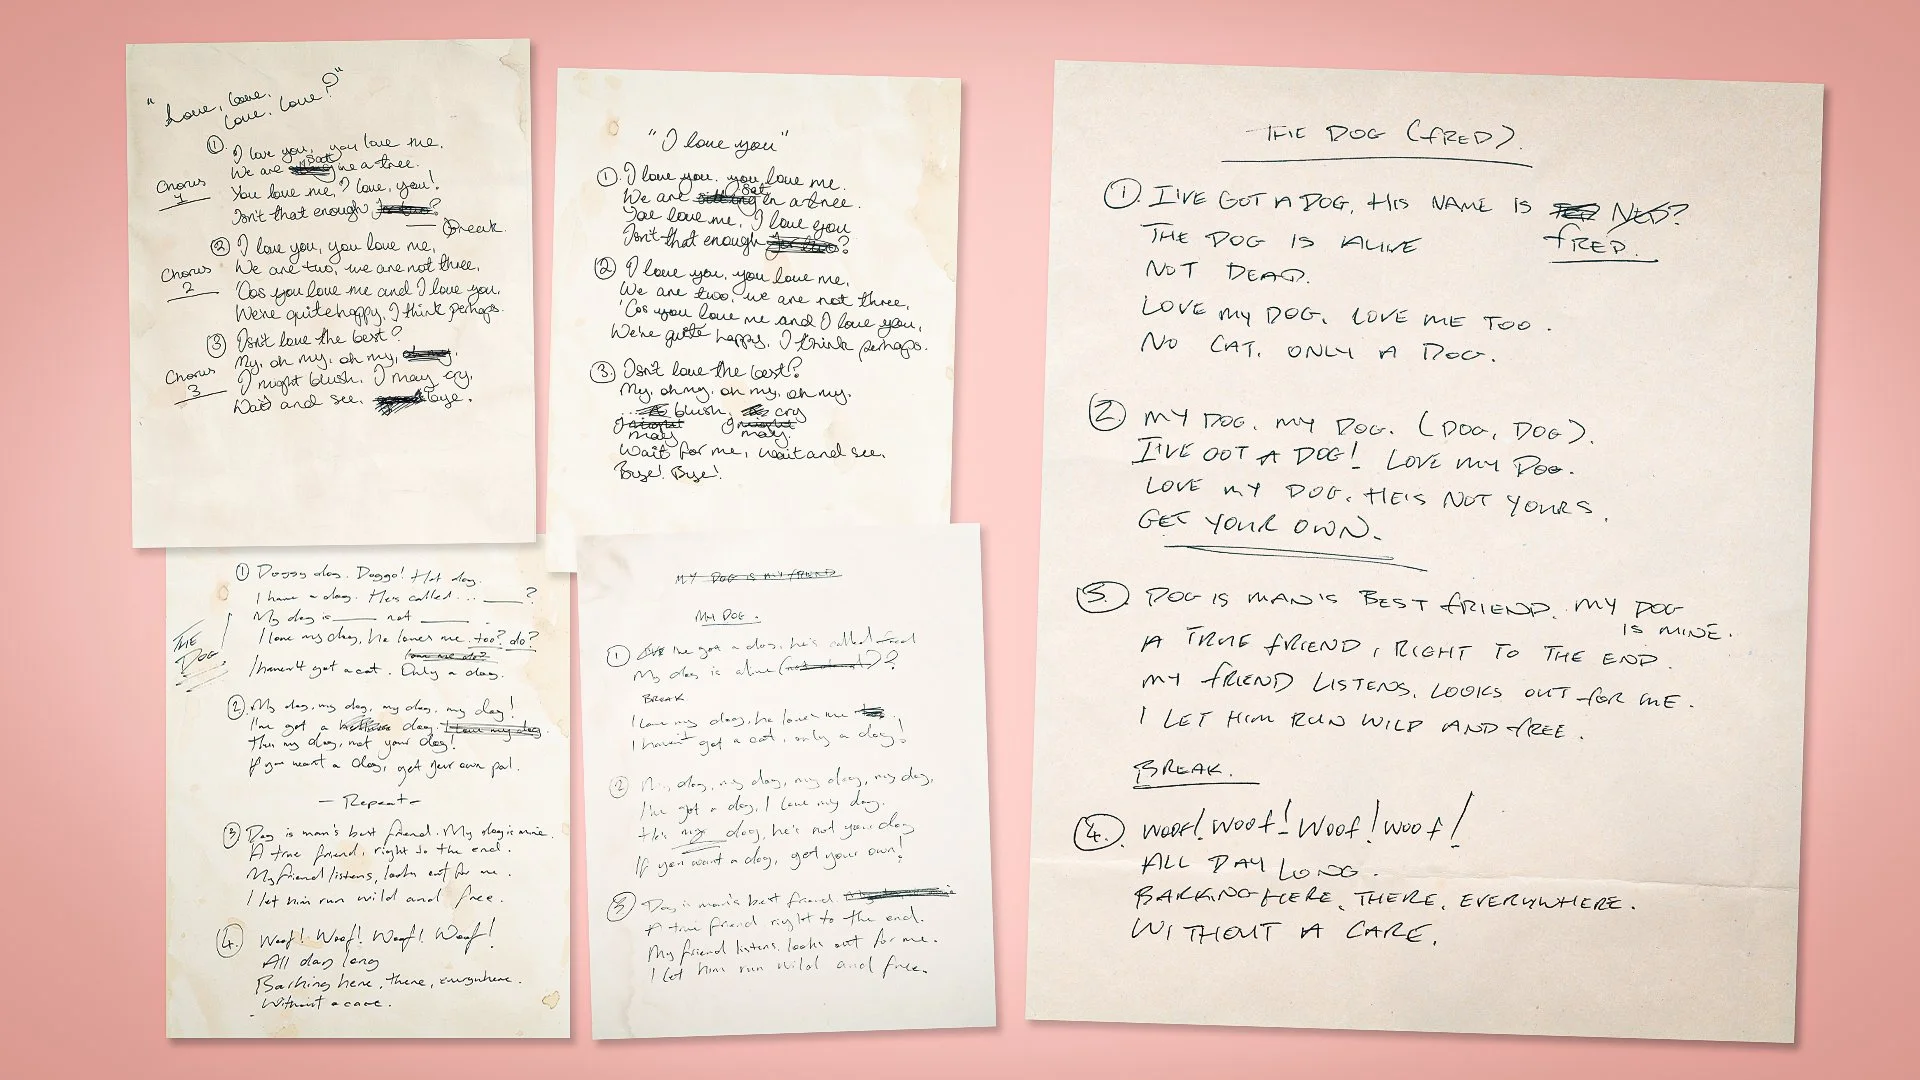 "Love, love,
love, love?"
① I love you, you love me,
We are Sat in a tree.
Chorus
1
You love me, I love, you!,
Isn't that enough for two?
Break.
② I love you, you love me,
We are two, we are not three,
Chorus
2
'Cos you love me and I love you,
We're quite happy, I think perhaps.
③ Isn't love the best?
My, oh my, oh my,
Chorus
3
I might blush, I may cry,
Wait and see, bye.
"I love you"
①. I love you, you love me.
We are sitting Sat in a tree.
You love me, I love you
Isn't that enough for two?
② I love you, you love me,
We are two, we are not three,
'Cos you love me and I love you,
We're quite happy, I think perhaps.
③. Isn't love the best?
My, oh my, oh my, oh my,
blush, cry
I might I might
may may.
Wait for me, wait and see,
Bye! Bye!
THE
DOG
① Doggy dog. Doggo! Hot dog.
I have a dog. He's called ... ___?
My dog is ___ not ___.
I love my dog, he loves me too? do?
love me do?
I haven't got a cat. Only a dog.
②. My dog, my dog, my dog, my dog!
I've got a dog, I love my dog.
This my dog, not your dog!
If you want a dog, get your own pal.
- Repeat -
③ Dog is man's best friend. My dog is mine.
A true friend, right to the end.
My friend listens, looks out for me.
I let him run wild and free.
④. Woof! Woof! Woof! Woof!
All day long
Barking here, there, everywhere.
Without a care.
MY DOG IS MY FRIEND
MY DOG.
① I've got a dog, he's called fred
My dog is alive (not dead)?
BREAK
I love my dog, he loves me
I haven't got a cat, only a dog!
② My dog, my dog, my dog, my dog,
I've got a dog, I love my dog.
This my dog, he's not your dog
If you want a dog, get your own!
③ Dog is man's best friend
A true friend right to the end.
My friend listens, looks out for me.
I let him run wild and free.
THE DOG (FRED).
①. I'VE GOT A DOG, HIS NAME IS NED?
THE DOG IS ALIVE FRED.
NOT DEAD.
LOVE MY DOG, LOVE ME TOO.
NO CAT, ONLY A DOG.
②. MY DOG, MY DOG. (DOG, DOG).
I'VE GOT A DOG! LOVE MY DOG.
LOVE MY DOG, HE'S NOT YOURS.
GET YOUR OWN.
③. DOG IS MAN'S BEST FRIEND. MY DOG
IS MINE.
A TRUE FRIEND, RIGHT TO THE END.
MY FRIEND LISTENS, LOOKS OUT FOR ME.
I LET HIM RUN WILD AND FREE.
BREAK.
④. WOOF! WOOF! WOOF! WOOF!
ALL DAY LONG.
BARKING HERE, THERE, EVERYWHERE.
WITHOUT A CARE.